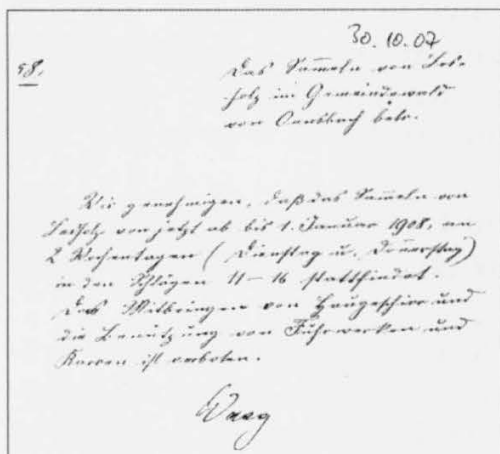 30.10.07
58.
Das Sammeln von Les-
holz im Gemeindewald
von Onsbach betr.
Wir genehmigen, daß das Sammeln von
Lesholz von jetzt ab bis 1. Januar 1908, an
2 Wochentagen (Dienstag u. Donnerstag)
in den Schlägen 11–16 stattfindet.
Das Mitbringen von Haugeschirr und
die Benützung von Fuhrwerken und
Karren ist verboten.